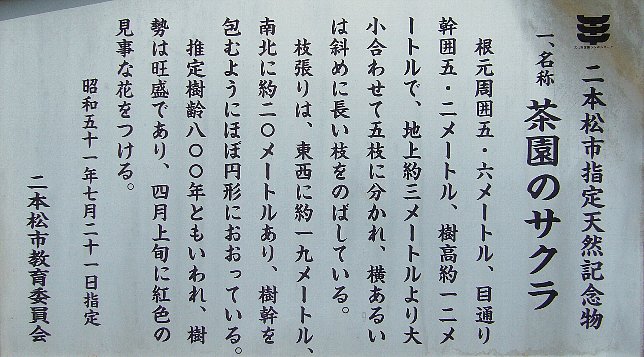 二本松市指定天然記念物
一、名称 茶園のサクラ
根元周囲五・六メートル、目通り
幹囲五・二メートル、樹高約一二メ
ートルで、地上約三メートルより大
小合わせて五枝に分かれ、横あるい
は斜めに長い枝をのばしている。
枝張りは、東西に約一九メートル、
南北に約二〇メートルあり、樹幹を
包むようにほぼ円形におおっている。
推定樹齢八〇〇年ともいわれ、樹
勢は旺盛であり、四月上旬に紅色の
見事な花をつける。
昭和五十一年七月二十一日指定
二本松市教育委員会